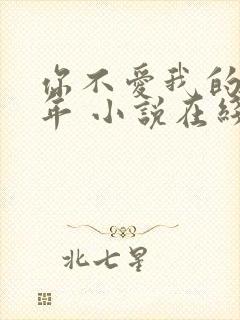 你不愛我的
年 小說在
北七星